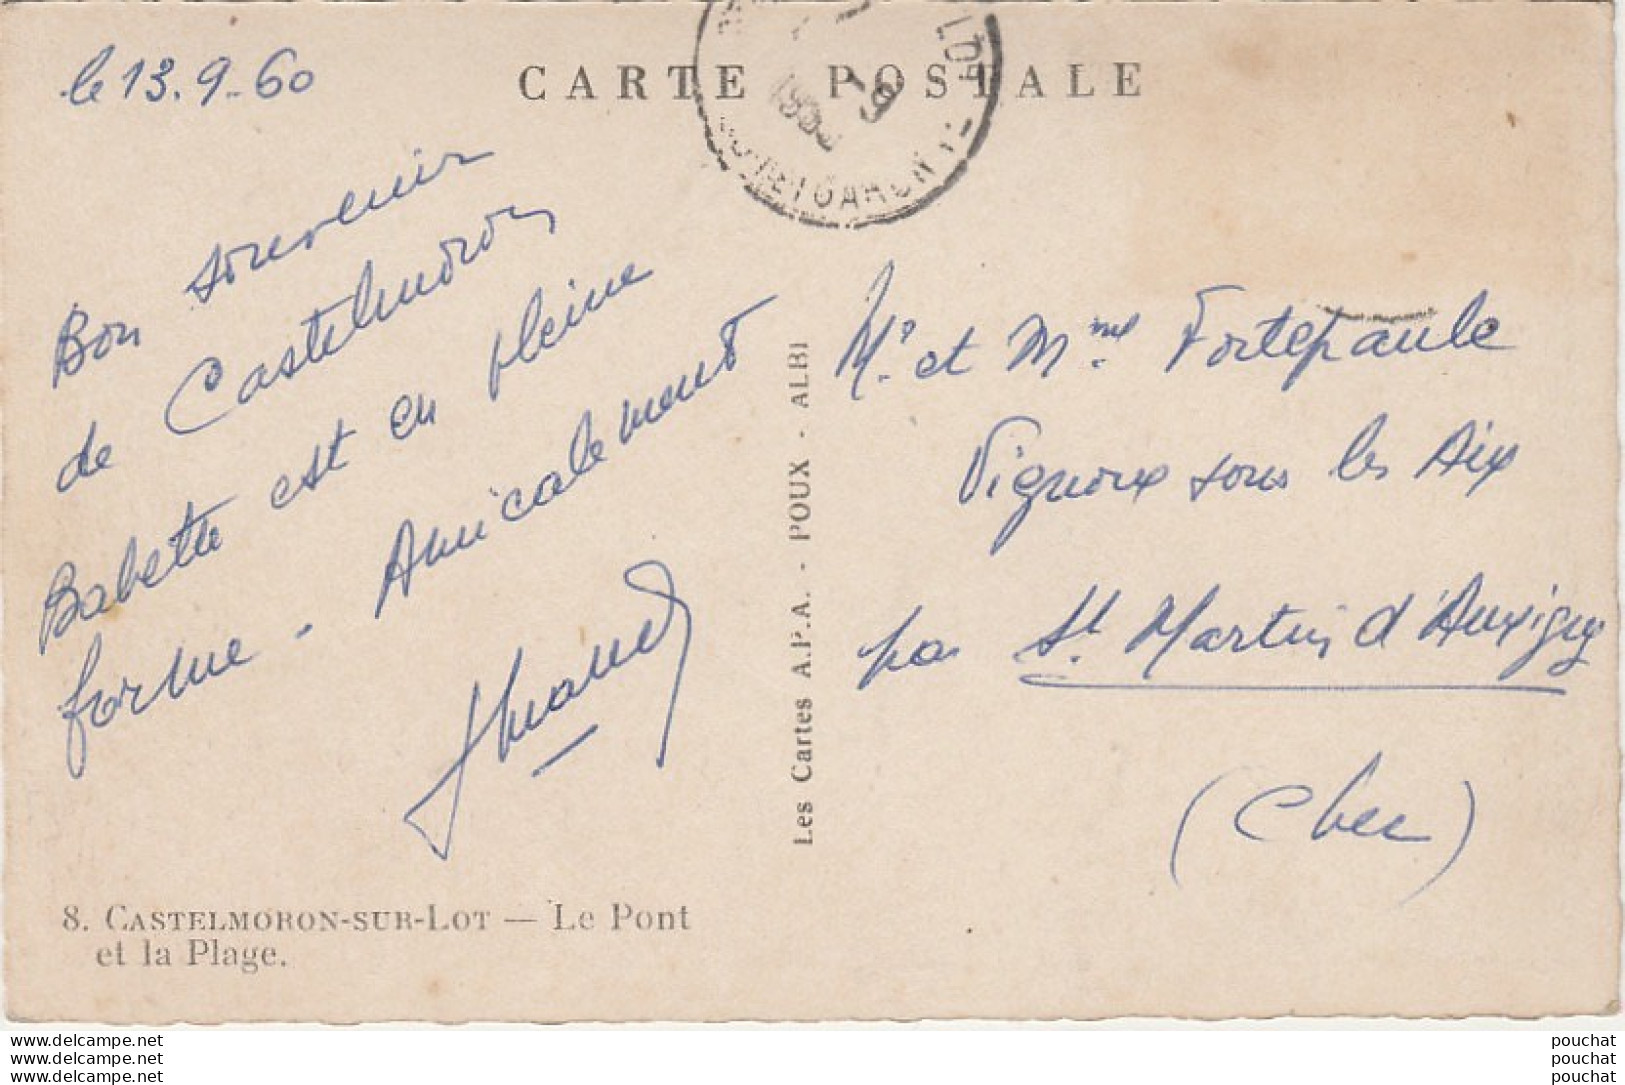 le 13.9.60
CARTE POSTALE
LOT
LOT ET GARONNE
Bon souvenir
de Castelmoron
Babette est en pleine
forme - Amicalement
Mr. et Mme Fortepaule
Vignoux sous les Aix
par St. Martin d'Auxigny
(Cher)
Les Cartes A.P.A. - POUX - ALBI
8. CASTELMORON-SUR-LOT — Le Pont
et la Plage.
www.delcampe.net
www.delcampe.net
www.delcampe.net
pouchat
pouchat
pouchat